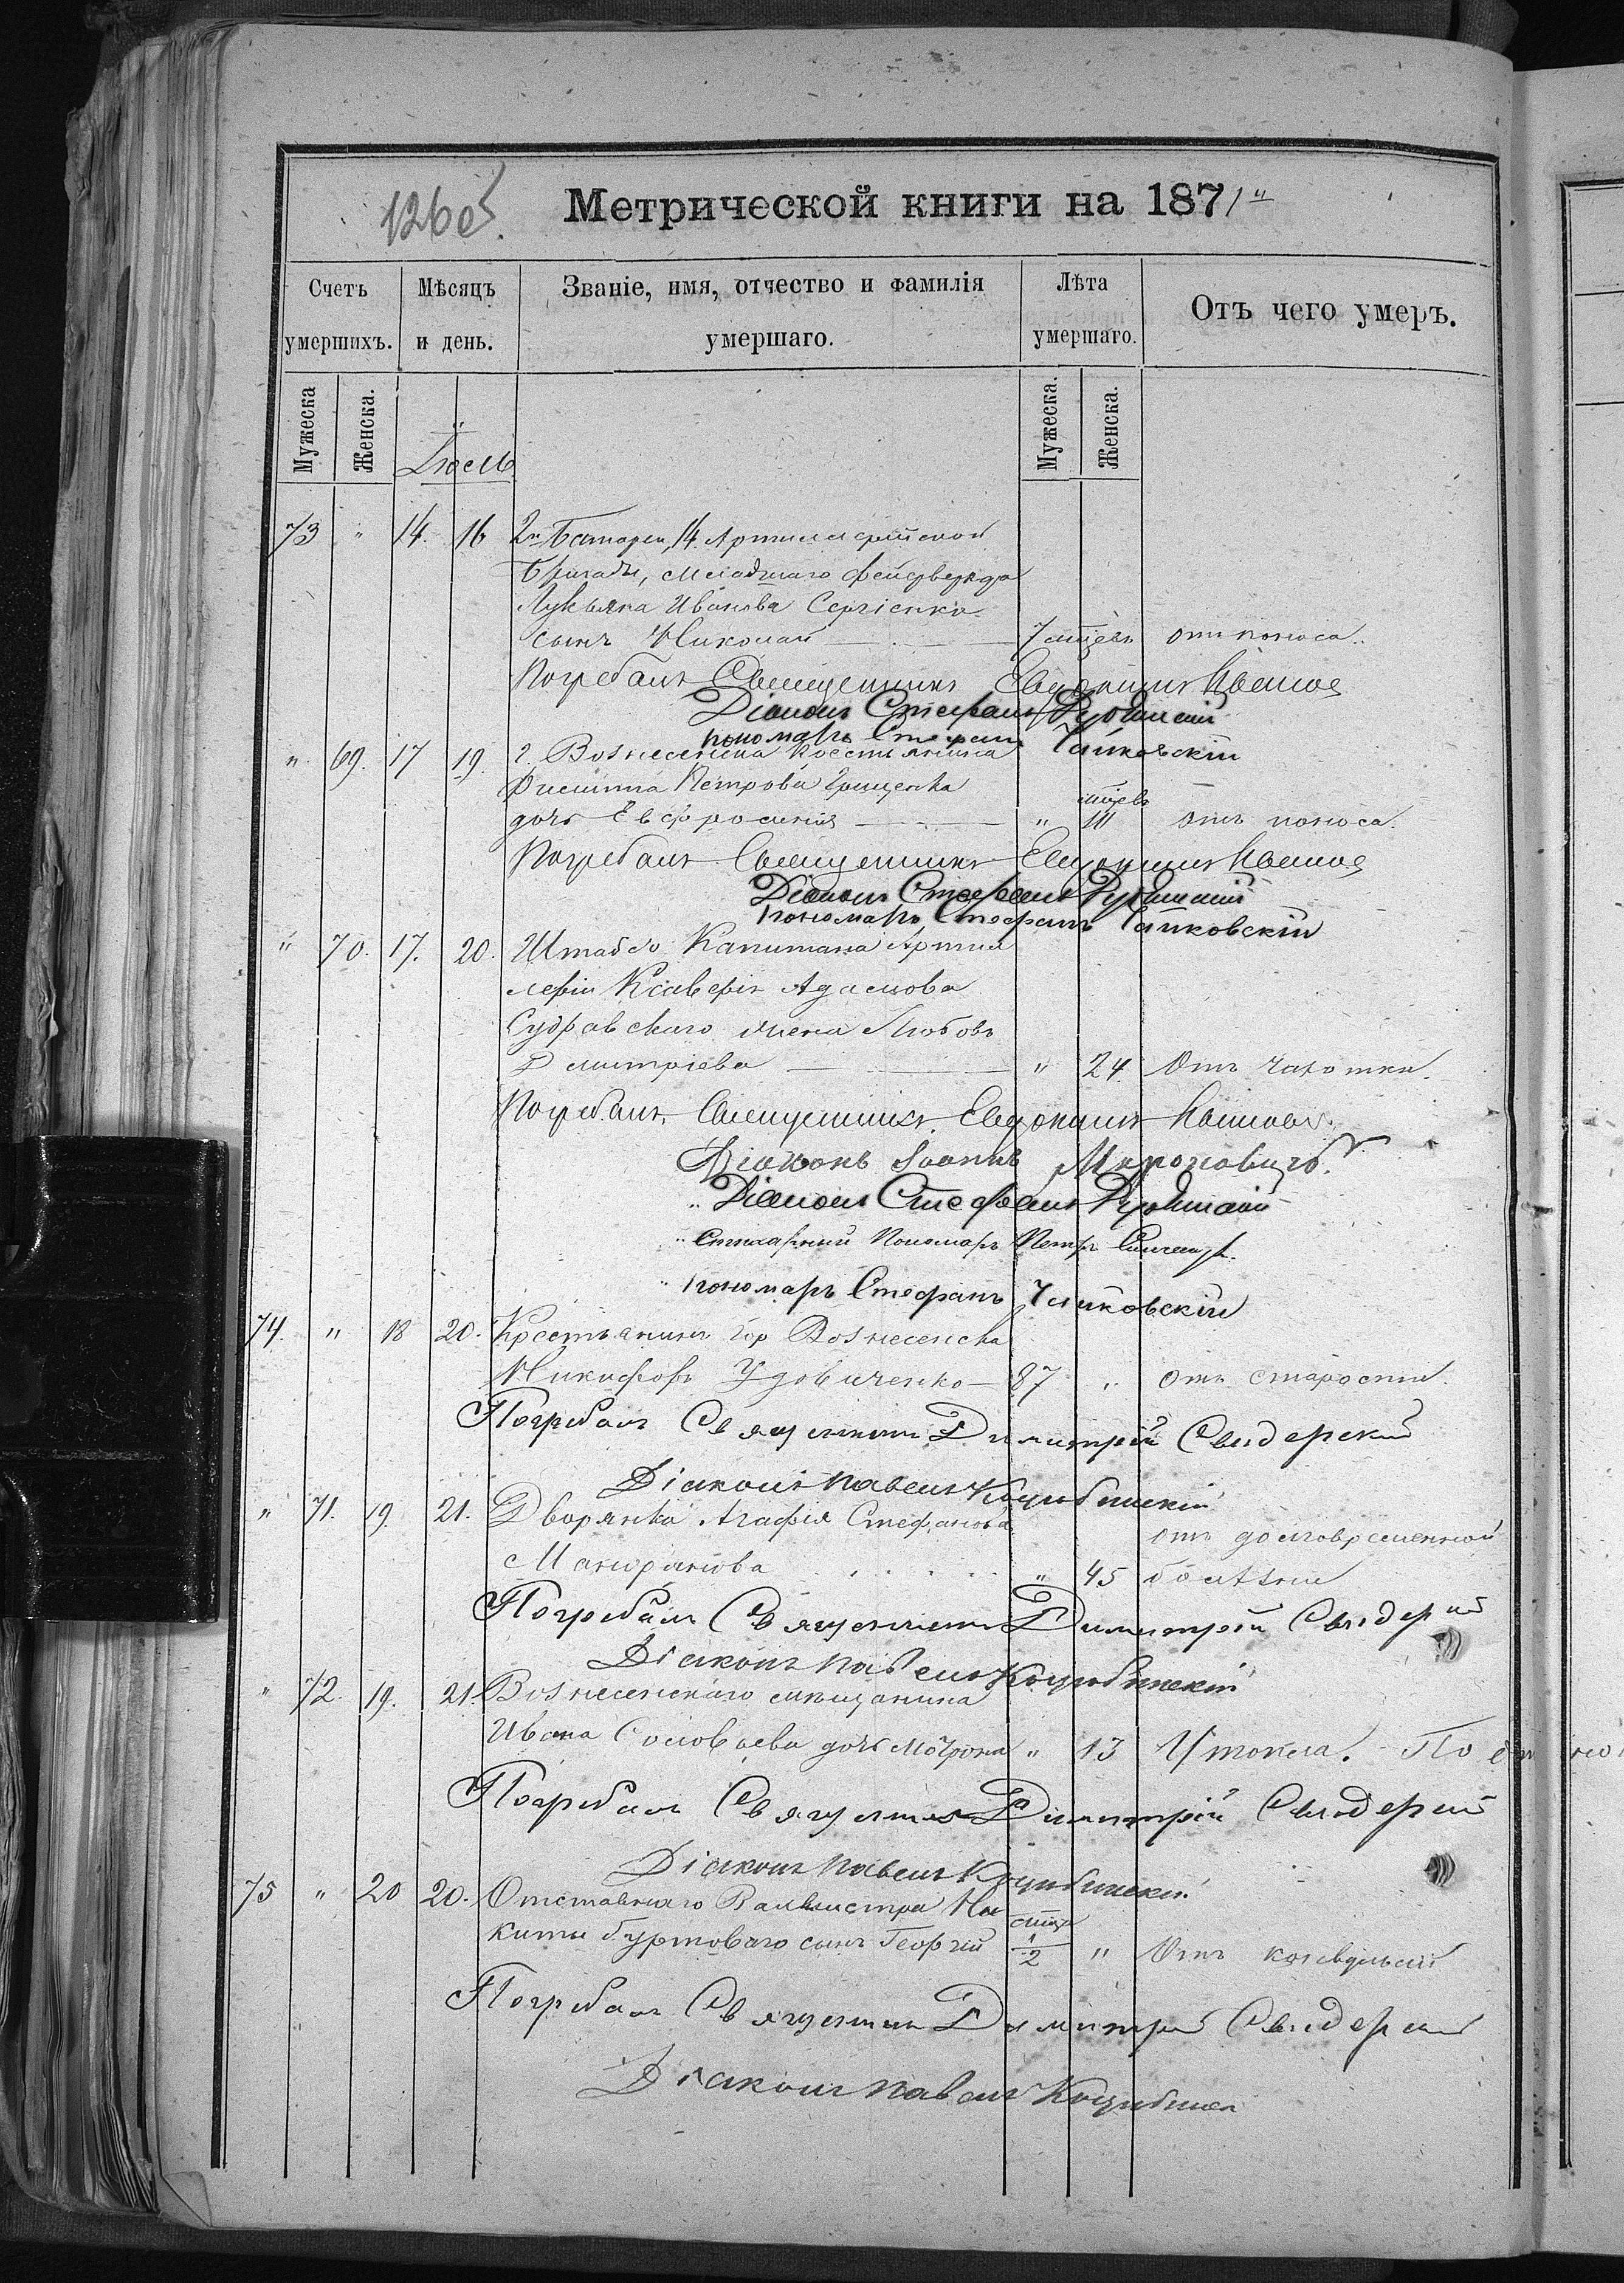 126об.
Метрической книги на 1871й
Счетъ умершихъ.
Мѣсяцъ и день.
Званіе, имя, отчество и фамилія умершаго.
Лѣта умершаго.
Отъ чего умеръ.
Мужеска
Женска.
Мужеска.
Женска.
Іюль
73 " 14. 16 2й Батареи, 14 Артиллерійской
бригады, младшаго фейерверкера
Лукьяна Иванова Сергіенко
сынъ Николай 7 мцевъ отъ поноса.
Погребалъ Священникъ Евдокимъ
Діаконъ Стефанъ
пономарь Стефанъ Чайковскій
" 69. 17 19. г. Вознесенска крестьянина
Филиппа Петрова Грищенка
мцевъ
дочь Евфросинія " III отъ поноса.
Погребалъ Священникъ Евдокимъ
Діаконъ Стефанъ
пономарь Стефанъ Чайковскій
" 70. 17. 20. Штабсъ Капитана Артил
леріи Ксаверія Адамова
жена Любовь
Дмитріева " 24. Отъ чахотки.
Погребалъ. Священникъ. Евдокимъ
Діаконъ Іоаннъ Мироновичъ.
" Діаконъ Стефанъ
" Пономарь Петръ
" пономарь Стефанъ Чайковскій
74. " 18 20. Крестьянинъ гор Вознесенска
Никифоръ Удовиченко 87 " отъ старости.
Погребалъ Священникъ Димитрій Свидерскій
Діаконъ Павелъ Коцюбинскій
" 71. 19. 21. Дворянка Агафія Стефанова
отъ долговременной
" 45 болѣзни
Погребалъ Священникъ Димитрій Свидерскій
Діаконъ Павелъ Коцюбинскій
" 72. 19. 21. Вознесенскаго мѣщанина
Ивана Соловьева дочь Мотрона " 13 Утонела. По
Погребалъ Священникъ Димитрій Свидерскій
Діаконъ Павелъ Коцюбинскій
75 " 20 20. Отставнаго Вахмистра Ни
мцъ
киты Буртоваго сынъ Георгій 1/2 " Отъ конвульсій
Погребалъ Священникъ Димитрій Свидерскій
Діаконъ Павелъ Коцюбинскій